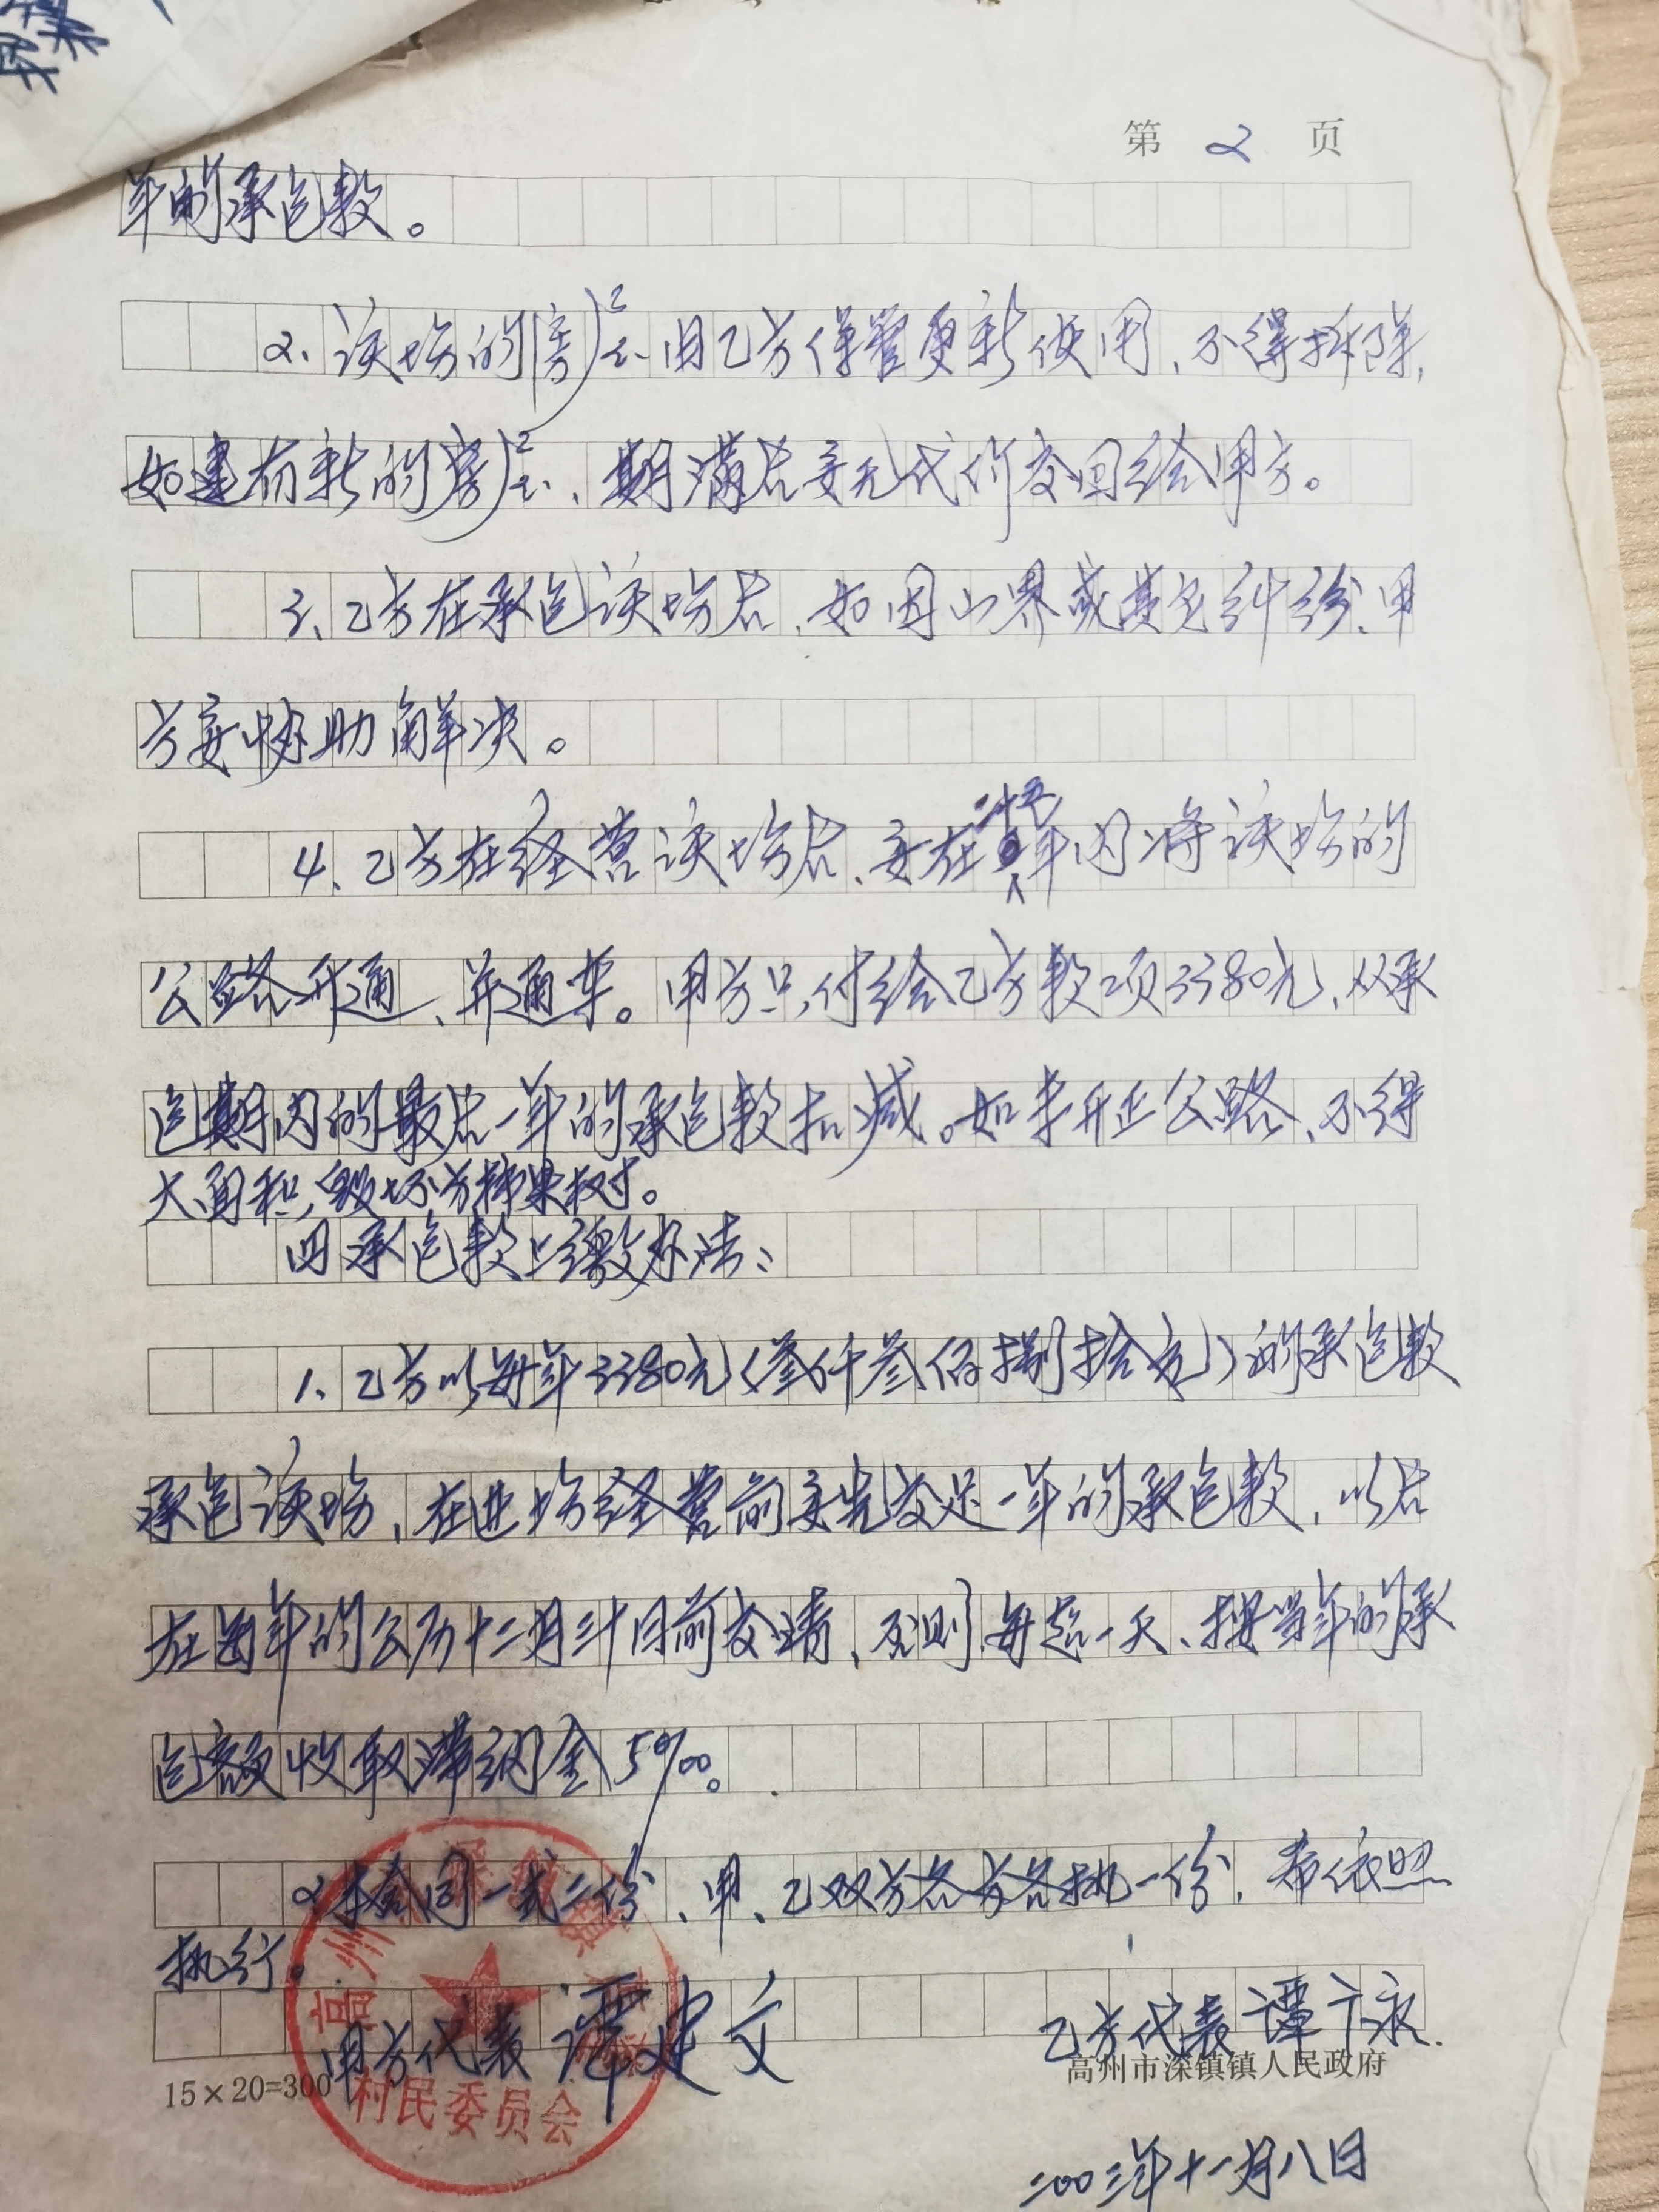 第 2 页
年的承包款。
2、该场的房屋由乙方保管更新使用、不得拆除,
如建有新的房屋、期满后要无代价交回给甲方。
3、乙方在承包该场后、如因山界或其它纠纷、甲
方要协助解决。
4、乙方在经营该场后、要在二十五年内将该场的
公路开通、并通车。甲方只付给乙方款项3380元、从承
包期内的最后一年的承包款扣减。如未开正公路、不得
大面积毁坏方柿果树。
四承包款上缴办法:
1、乙方以每年3380元(叁仟叁佰捌拾元)的承包款
承包该场、在进场经营前要先交足一年的承包款、以后
在每年的公历十二月三十日前交清、否则每超一天、按当年的承
包额收取滞纳金5‰。
2本合同一式二份、甲、乙双方各方各执一份、希依照
执行。
甲方代表 谭建文
乙方代表 谭卞永.
15×20=300
高州市深镇镇人民政府
高州
村民委员会
二00三年十一月八日